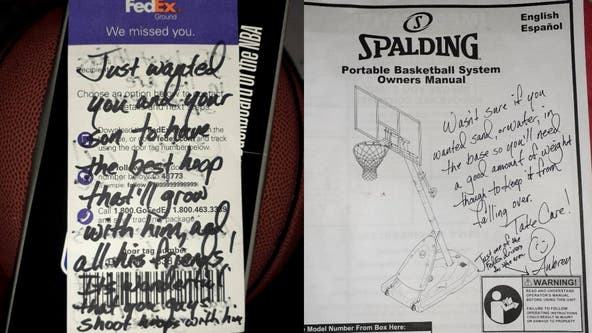 FedEx
Ground
We missed you.
Just wanted
you and your
son to have
the best hoop
that'll grow
with him, and
all his friends!
It's wonderful
that you guys
shoot hoops with him
Choose an option below to contact
1.800.GoFedEx 1.800.463.3339
door tag number
backboard of the NBA
SPALDING
English
Español
Portable Basketball System
Owners Manual
Wasn't sure if you
wanted sand, or water, in
the base so you'll need
a good amount of weight
though to keep it from
falling over.
Take Care!
Just one of the
FedEx drivers
in the area
Aubrey
WARNING!
READ AND UNDERSTAND
OPERATOR'S MANUAL
BEFORE USING THIS UNIT
FAILURE TO FOLLOW
OPERATING INSTRUCTIONS
COULD RESULT IN INJURY
OR DAMAGE TO PROPERTY
Model Number From Box Here: